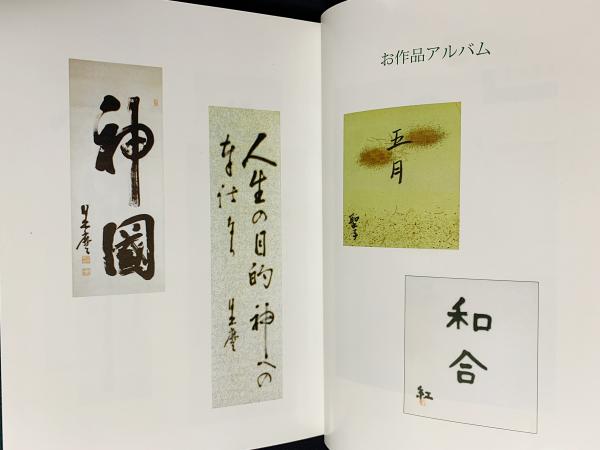 お作品アルバム
五月
聖子
和合
紅
人生の目的神への
奉仕なり
神國